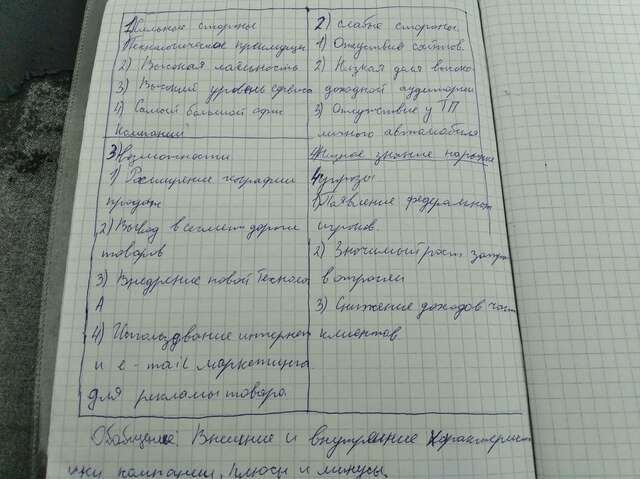 1) Сильные стороны
1) Технологическое преимущ
2) Высокая лояльность
3) Высокий уровень сервиса
4) Самый большой офис
компаний
2) Слабые стороны
1) Отсутствие сайтов.
2) Низкая для высоко
доходной аудитории
3) Отсутствие у ТП
личного автомобиля
4) знание
3) Возможности
1) Расширение географии
продаж
2) Вывод в сегмент дорогих
товаров
3) Внедрение новой техноло
А
4) Использование интернет
и e-mail маркетинга
для рекламы товара
4) угрозы
1) Появление федеральных
игроков.
2) Значимый рост затр
в отрасли
3) Снижение доходов части
клиентов
Обобщение: Внешние и внутренние характерист
ики компании, плюсы и минусы.